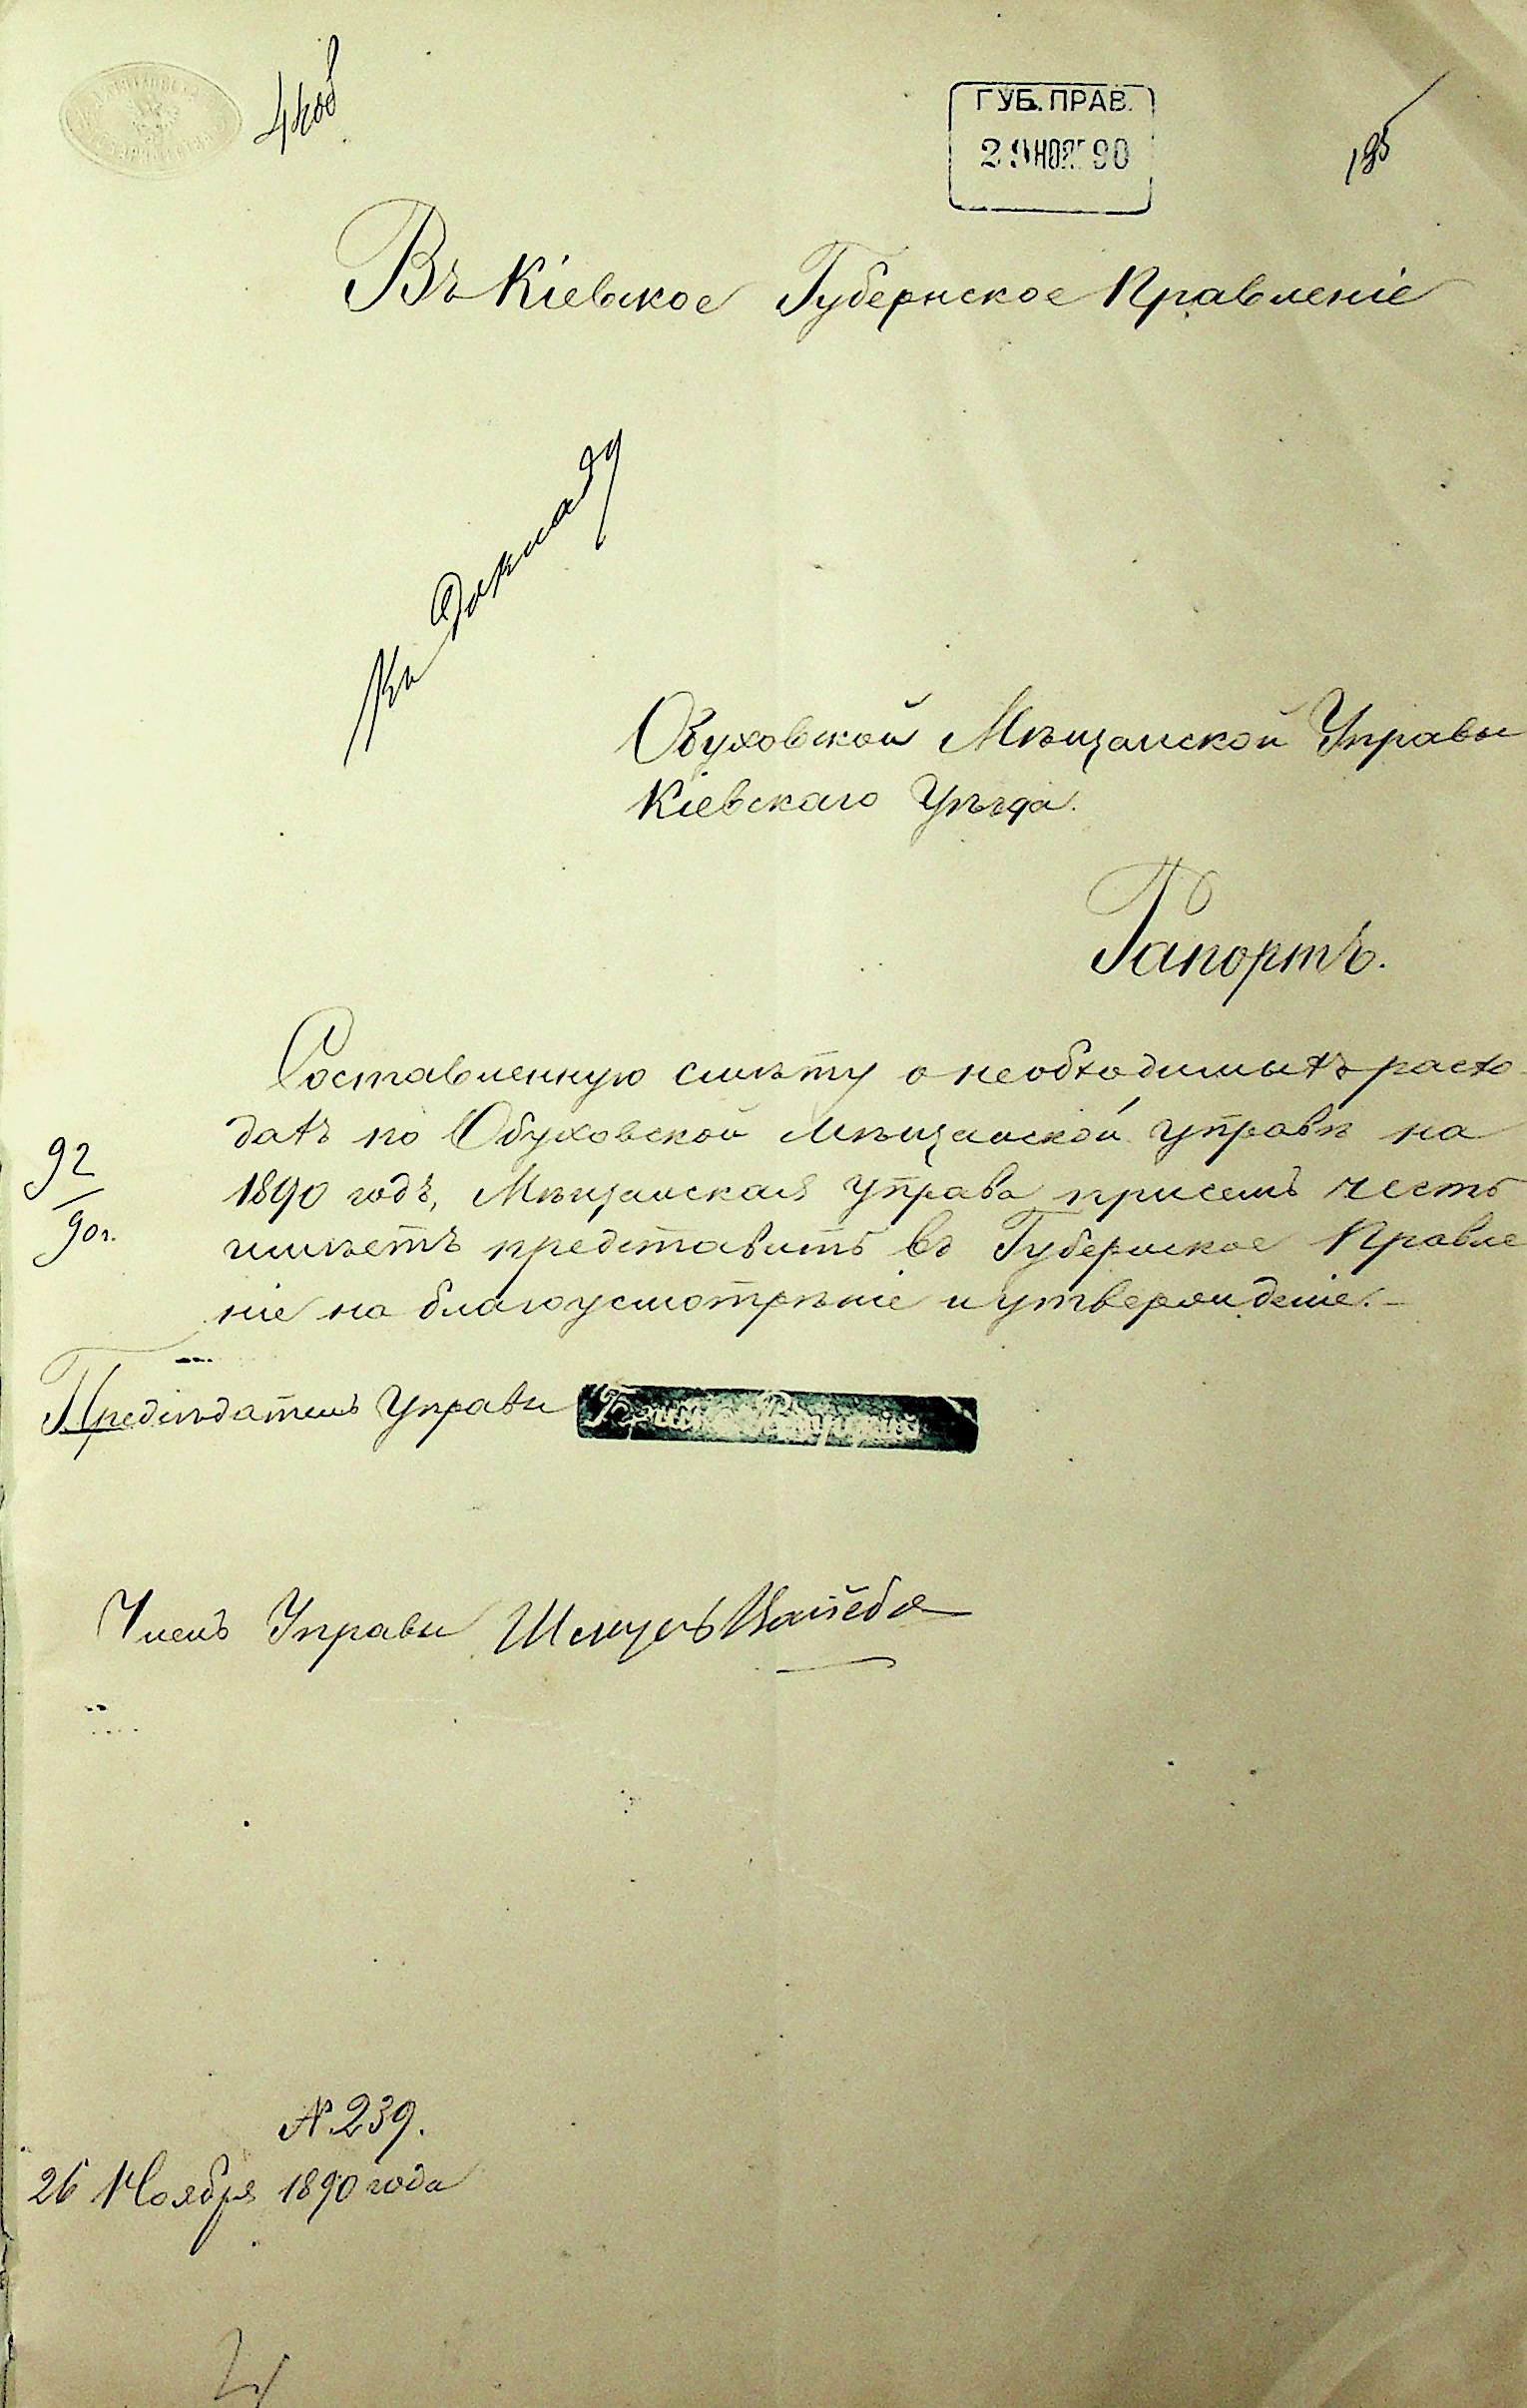 ГУБ. ПРАВ.
29 НОЯ 90
195
Въ Кіевское Губернское Правленіе
Къ докладу
Обуховской Мѣщанской Управы
Кіевскаго Уѣзда.
Рапортъ.
Составленную смѣту о необходимыхъ расхо-
дахъ по Обуховской Мѣщанской Управѣ на
1890 годъ, Мѣщанская Управа присемъ честь
имѣетъ представить въ Губернское Правле
ніе на благоусмотрѣніе и утвержденіе.-
92
90г.
Предсѣдатель Управы
Членъ Управы Шмуль
№ 239.
26 Ноября 1890 года